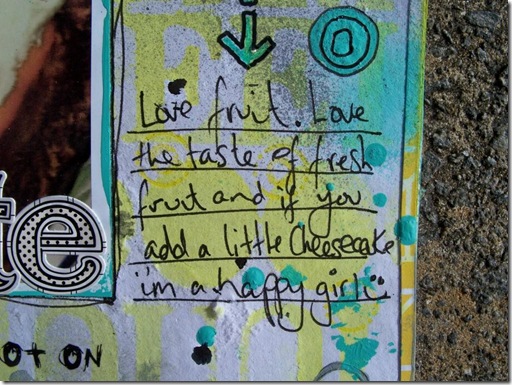 Love fruit. Love
the taste of fresh
fruit and if you
add a little Cheesecake
i'm a happy girl
te
ot on